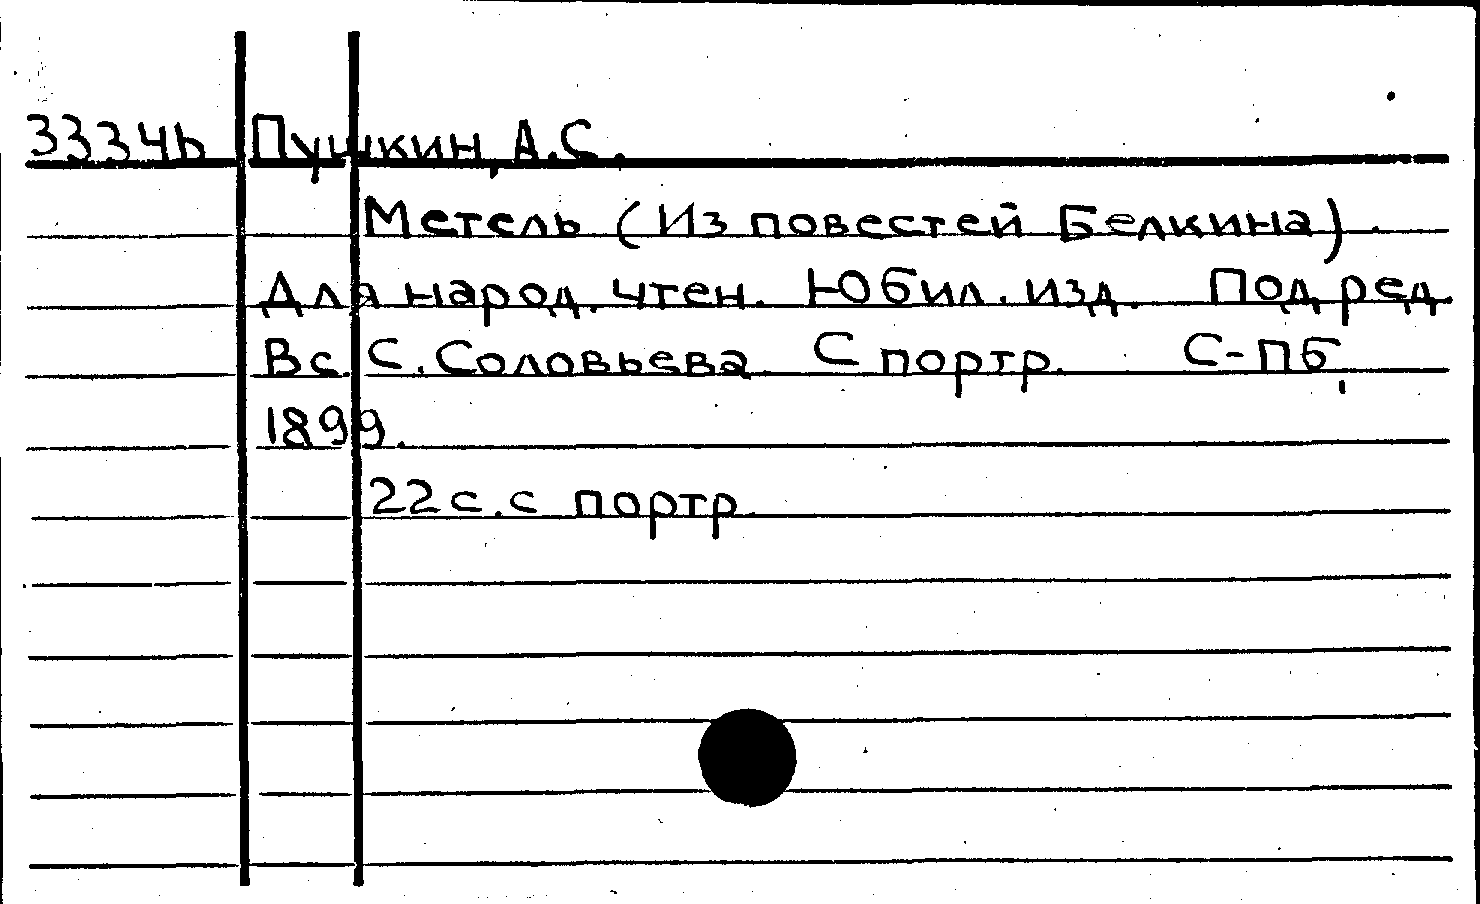 3334ь Пушкин, А.С.
Метель (Из повестей Белкина).
Для народ. чтен. Юбил. изд. Под ред.
Вс. С. Соловьева. С портр. С-Пб,
1899.
22 с. с портр.